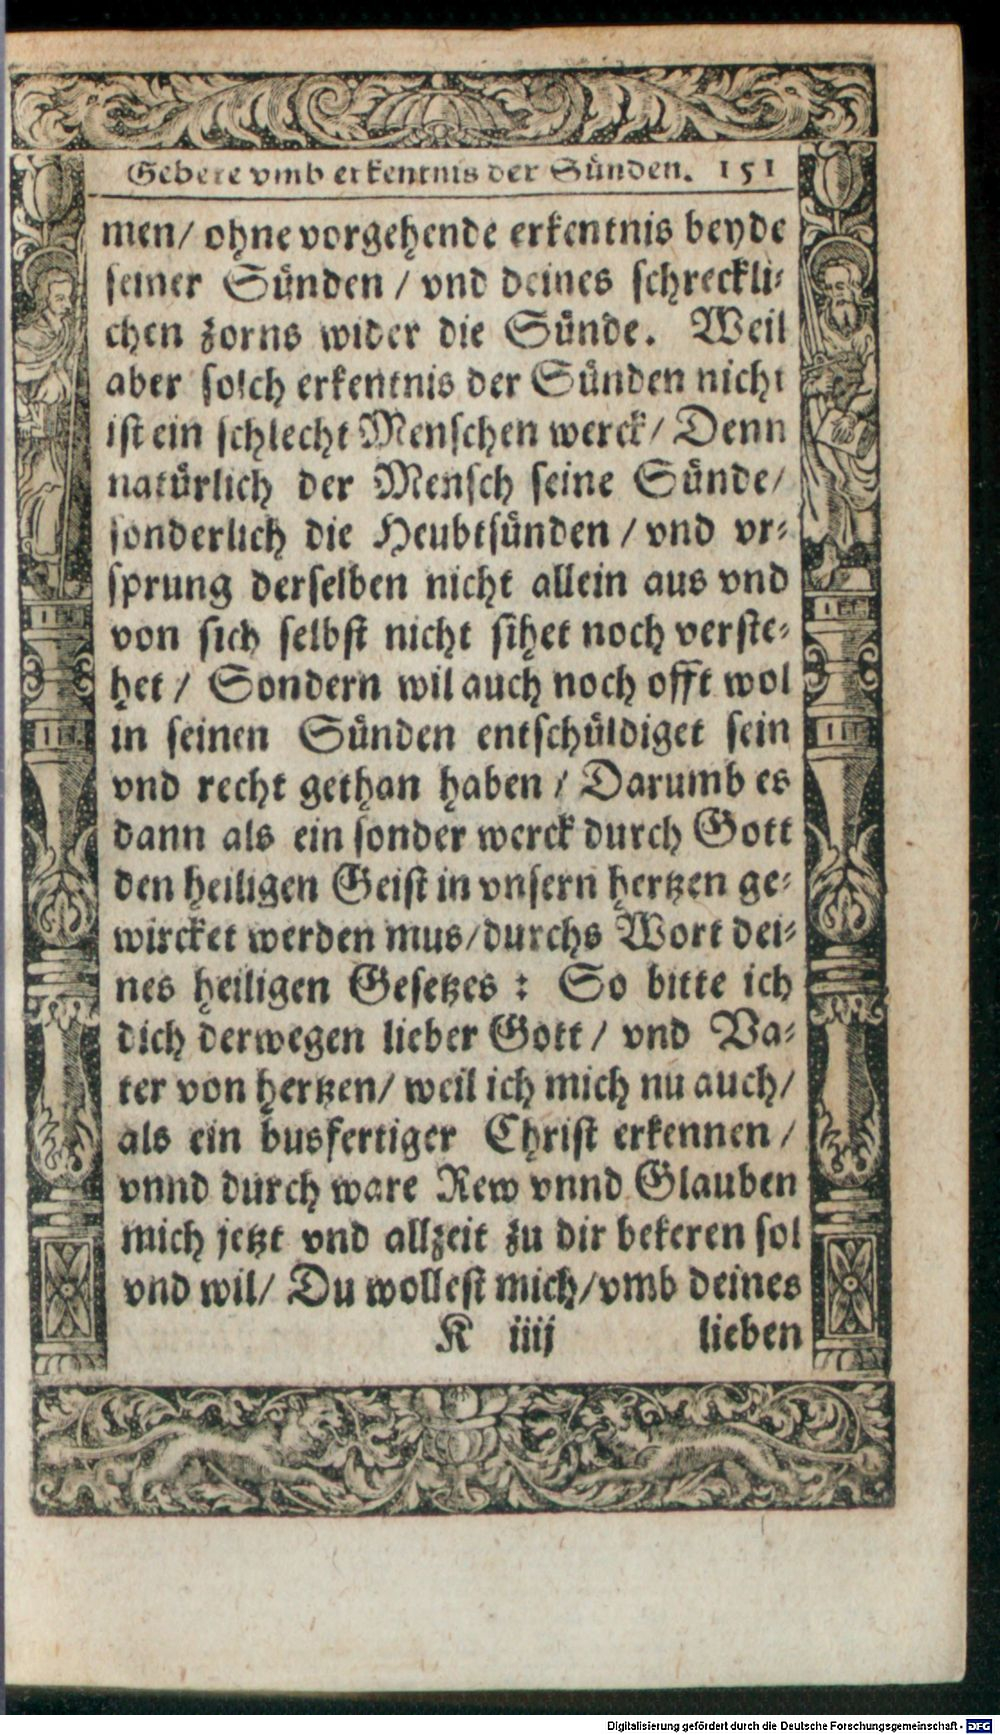 Gebete vmb erkentnis der Sünden. 151
men/ ohne vorgehende erkentnis beyde
seiner Sünden / vnd deines schreckli⸗
chen zorns wider die Sünde. Weil
aber solch erkentnis der Sünden nicht
ist ein schlecht Menschen werck/ Denn
natürlich der Mensch seine Sünde/
sonderlich die Heubtsünden / vnd vr⸗
sprung derselben nicht allein aus vnd
von sich selbst nicht sihet noch verste⸗
het / Sondern wil auch noch offt wol
in seinen Sünden entschüldiget sein
vnd recht gethan haben / Darumb es
dann als ein sonder werck durch Gott
den heiligen Geist in vnsern hertzen ge⸗
wircket werden mus/durchs Wort dei⸗
nes heiligen Gesetzes : So bitte ich
dich derwegen lieber Gott / vnd Va⸗
ter von hertzen/ weil ich mich nu auch/
als ein busfertiger Christ erkennen /
vnnd durch ware Rew vnnd Glauben
mich jetzt vnd allzeit zu dir bekeren sol
vnd wil/ Du wollest mich/vmb deines
K iiij lieben
Digitalisierung gefördert durch die Deutsche Forschungsgemeinschaft - DFG